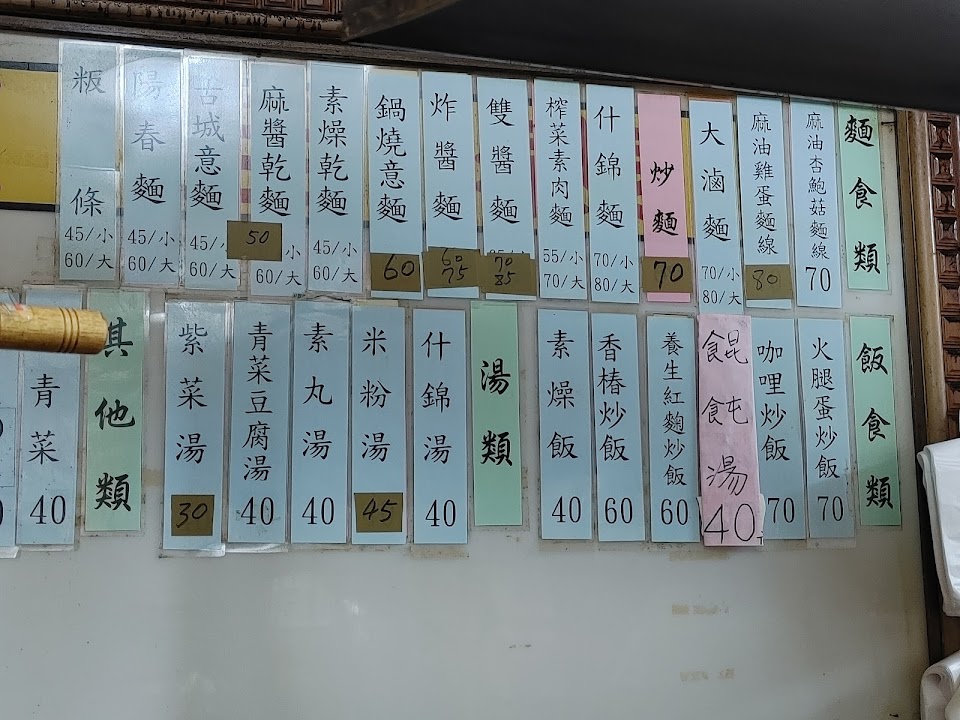 麵食類
麻油杏鮑菇麵線 70
麻油雞蛋麵線 80
大滷麵 70/小 80/大
炒麵 70
什錦麵 70/小 80/大
榨菜素肉麵 55/小 70/大
雙醬麵 70 85
炸醬麵 60 75
鍋燒意麵 60
素燥乾麵 45/小 60/大
麻醬乾麵 50 小 60/大
古城意麵 45/小 60/大
陽春麵 45/小 60/大
粄條 45/小 60/大
飯食類
火腿蛋炒飯 70
咖哩炒飯 70
餛飩湯 40
養生紅麴炒飯 60
香椿炒飯 60
素燥飯 40
湯類
什錦湯 40
米粉湯 45
素丸湯 40
青菜豆腐湯 40
紫菜湯 30
其他類
青菜 40